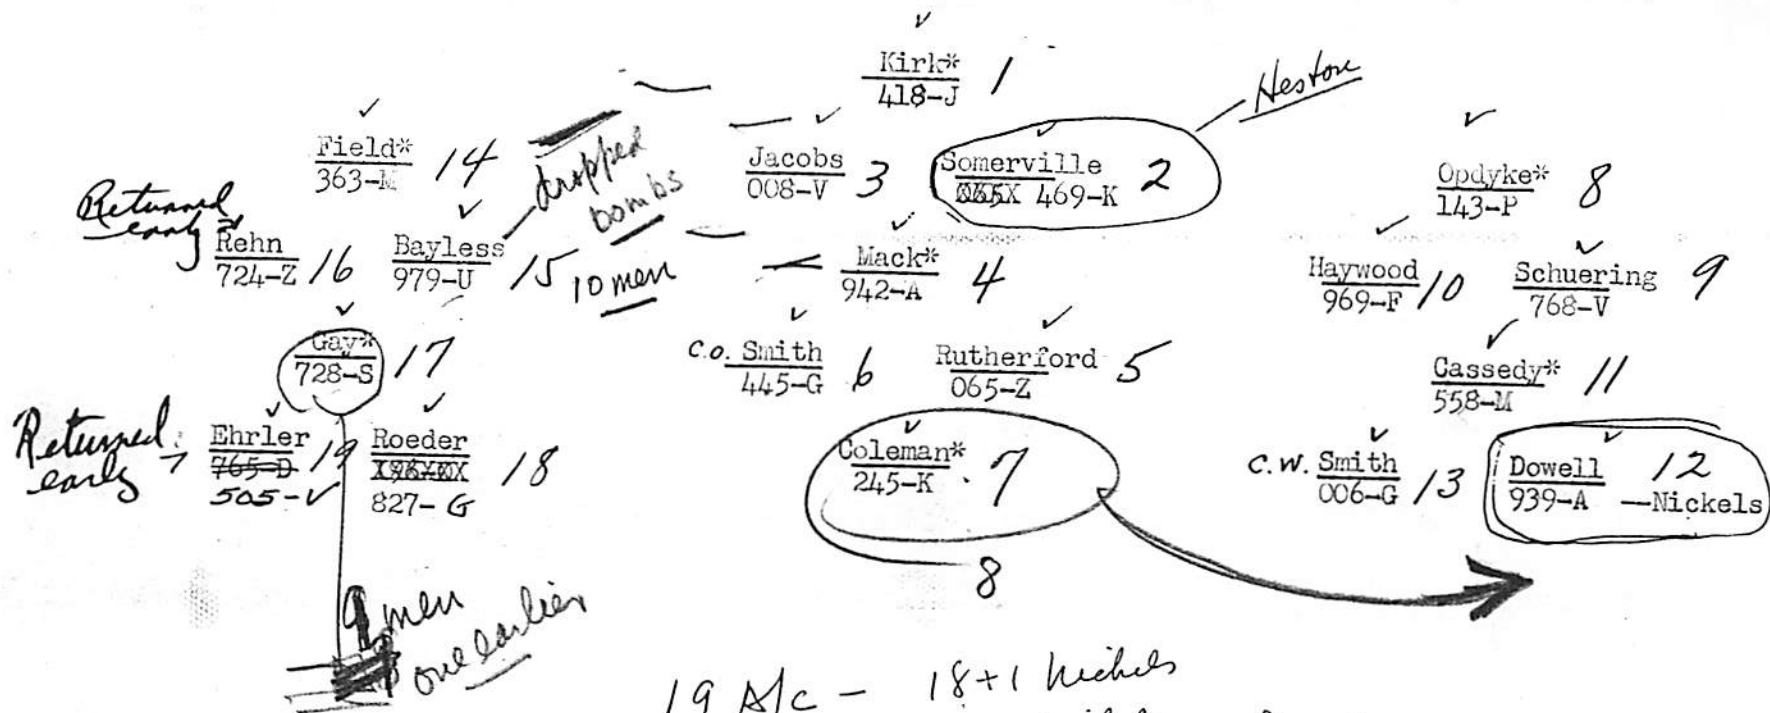 Kirk* 1
418-J
Heston
Field* 14
363-M
dropped bombs
Jacobs 3
008-V
Somerville 2
469-K
Opdyke* 8
143-P
Returned early
Rehn 16
724-Z
Bayless 15
979-U
10 men
Mack* 4
942-A
Haywood 10
969-F
Schuering 9
768-V
Gay* 17
728-S
C.O. Smith 6
445-G
Rutherford 5
065-Z
Cassedy* 11
558-M
Returned early
Ehrler 19
765-D
505-V
Roeder 18
827-G
Coleman* 7
245-K
8
C.W. Smith 13
006-G
Dowell 12
939-A —Nickels
9 men
one earlier
19 A/c - 18+1 Nickels